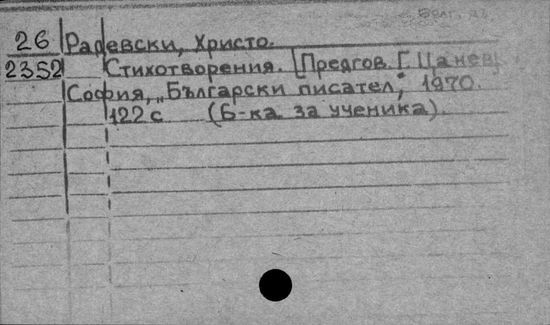 26 Радевски, Христо.
2352 Стихотворения. [Предгов. Г. Цанев]
София, „Български писател", 1970.
122 с (Б-ка за ученика).